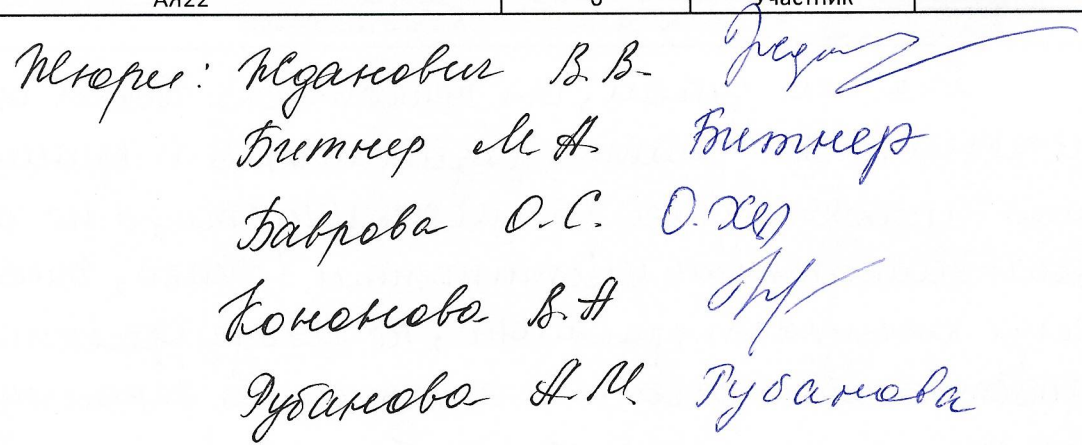 АЯ22 6 участник
Жюри: Жданович В.В.
Битнер М.А. Битнер
Баврова О.С.
Кононова В.А
Рубанова А.М. Рубанова